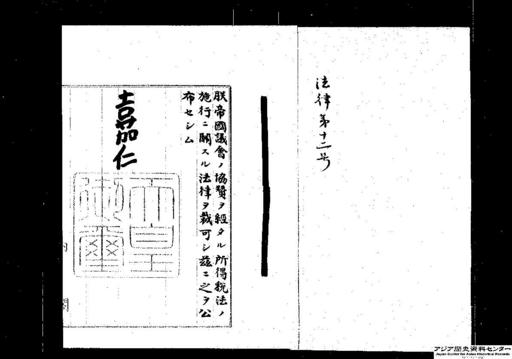 法律第十二号
朕帝國議會ノ協贊ヲ經タル所得税法ノ
施行ニ關スル法律ヲ裁可シ茲ニ之ヲ公
布セシム
嘉仁
天皇
御璽
内
閣
アジア歴史資料センター
Japan Center for Asian Historical Records